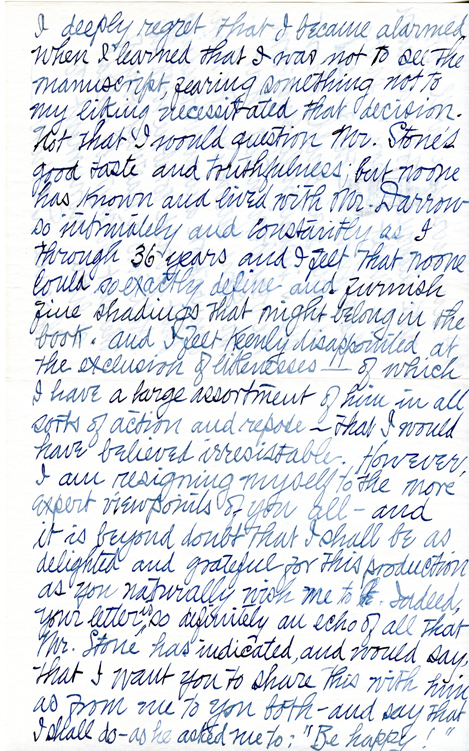 I deeply regret that I became alarmed
when I learned that I was not to see the
manuscript, fearing something not to
my liking necessitated that decision.
Not that I would question Mr. Stone's
good taste and truthfulness; but no one
has known and lived with Mr. Darrow
so intimately and constantly as I
through 36 years and I feel that no one
could so exactly define and furnish
fine shadings that might belong in the
book. and I feel keenly disappointed at
the exclusion of likenesses!! of which
I have a large assortment of him in all
sorts of action and repose – that I would
have believed irresistable. However,
I am resigning myself to the more
expert viewpoints of you all – and
it is beyond doubt that I shall be as
delighted and grateful for this production
as you naturally wish me to be. Indeed,
your letter, so definitely an echo of all that
Mr. Stone has indicated, and would say,
that I want you to share this with him
as from me to you both – and say that
I shall do – as he asked me to: "Be happy!"